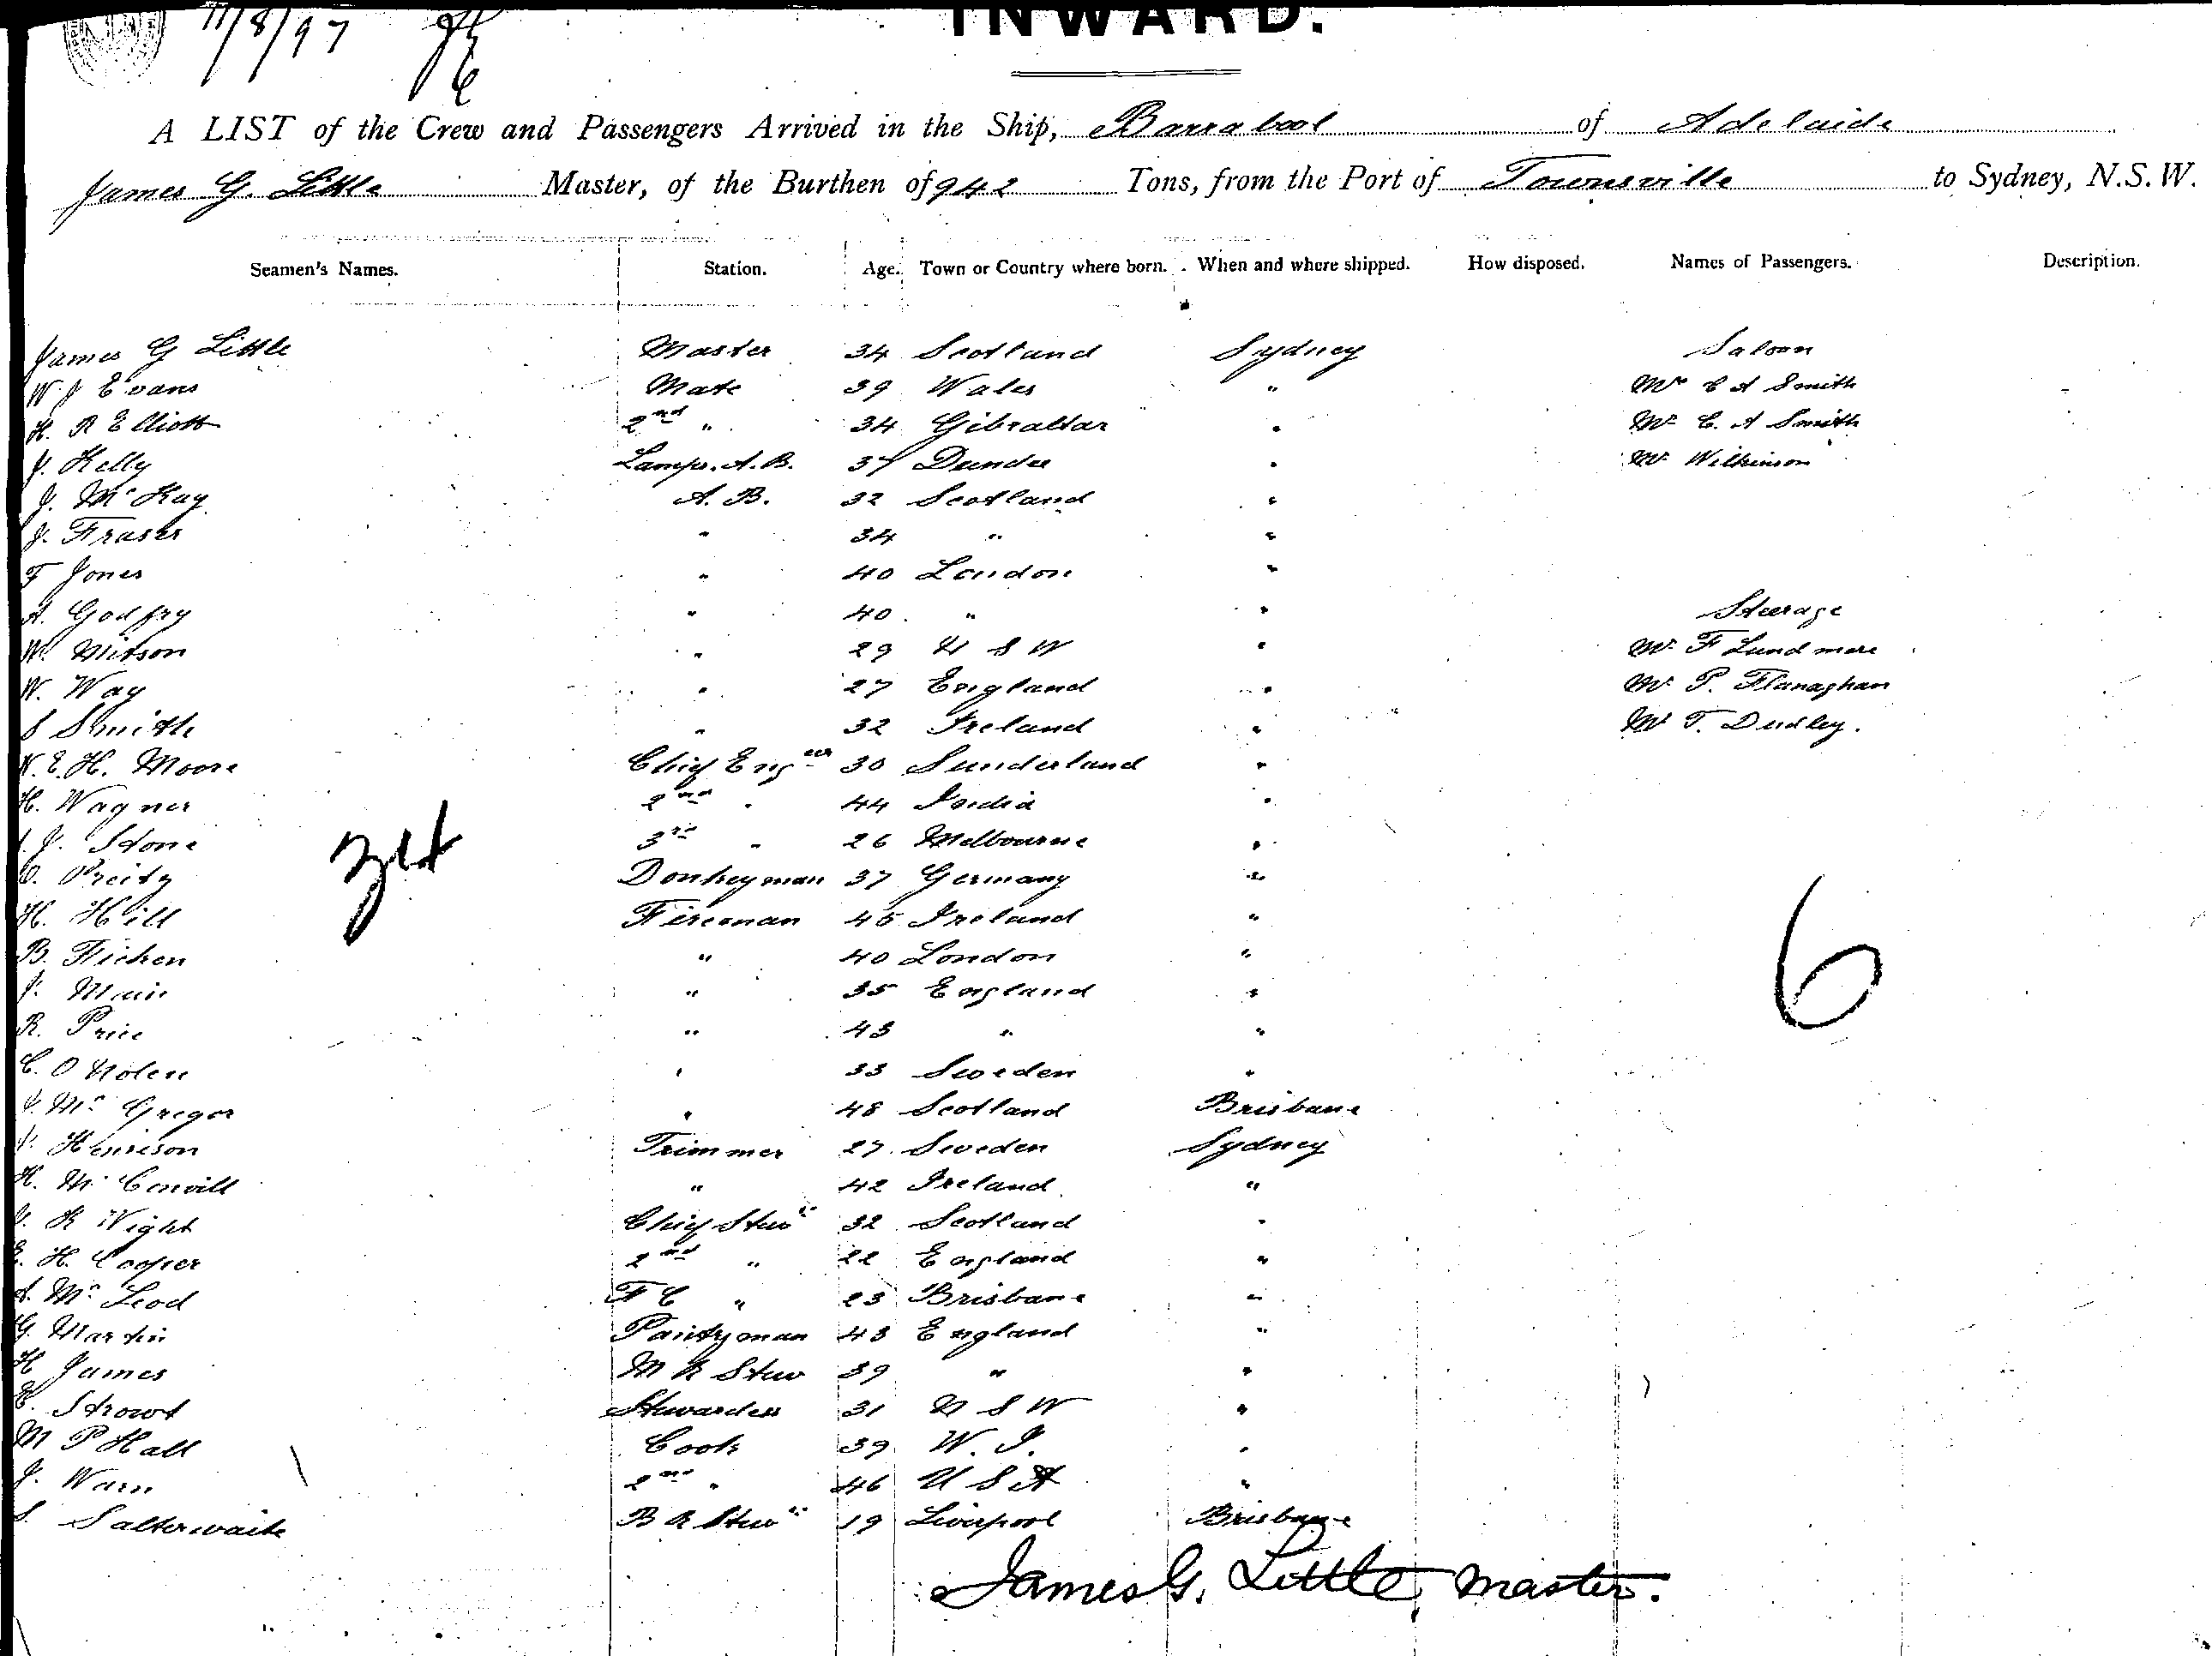 11/8/97
INWARD.
A LIST of the Crew and Passengers Arrived in the Ship, Barrabool of Adelaide
James G. Little Master, of the Burthen of 942 Tons, from the Port of Townsville to Sydney, N.S.W.
Seamen's Names. Station. Age. Town or Country where born. When and where shipped. How disposed. Names of Passengers. Description.
James G Little Master 34 Scotland Sydney Saloon
W J Evans Mate 39 Wales " Mr C A Smith
H. R Elliott 2nd " 34 Gibraltar " Mr C. A Smith
J. Kelly Lamps. A.B. 37 Dundee " Mr Wilkinson
J. Mc Kay A.B. 32 Scotland "
J. Fraser " 34 " "
F Jones " 40 London "
A. Godfry " 40 " " Steerage
W. Mitson " 29 N S W " Mr F Lundmare
W. Way " 27 England " Mr P. Flanaghan
S Smith " 32 Ireland " Mr T. Dudley.
W. E. H. Moore Chief Engeer 30 Sunderland "
H. Wagner 2nd " 44 India "
J. Stone 3rd " 26 Melbourne "
O. Preity Donkeyman 37 Germany "
H. Hill Fireman 45 Ireland "
B. Fichen " 40 London "
J. Main " 35 England "
R. Price " 43 " "
C. O Nolen " 33 Sweden "
J. Mc Gregor " 48 Scotland Brisbane
J. Henrison Trimmer 27 Sweden Sydney
H. Mc Convill " 42 Ireland "
J. R Wight Chief Stewd 32 Scotland "
E. H. Cooper 2nd " 22 England "
A. Mc Leod F C " 23 Brisbane "
G. Martin Pantryman 43 England "
H James M R Stew 39 " "
E. Strowt Stewardess 31 N S W "
M P Hall Cook 39 W. I. "
J. Warn 2nd " 46 U S A "
S. Salterwaite B R Stewd 19 Liverpool Brisbane
6
James G. Little, Master.